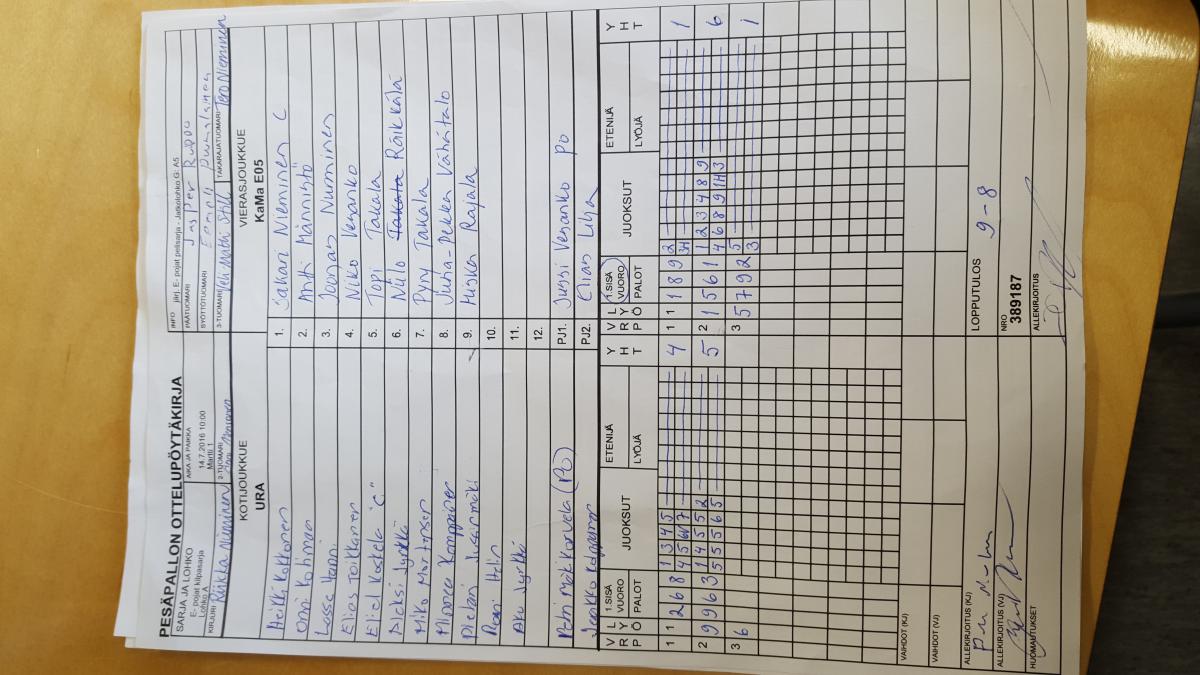 PESÄPALLON OTTELUPÖYTÄKIRJA
SARJA JA LOHKO
E- pojat kilpasarja
Lohko A
AIKA JA PAIKKA
14.7.2016 10:00
Martti 1
INFO jikrj. E- pojat pelisarja - Jatkolohko G: A5
PÄÄTUOMARI Jasper Ruppa
SYÖTTÖTUOMARI
KIRJURI Riikka Nieminen
2-TUOMARI
3-TUOMARI Veli-Matti Still
TAKARAJATUOMARI Tero Nieminen
KOTIJOUKKUE
URA
VIERASJOUKKUE
KaMa E05
Heikki Kokkonen
1. Sakari Nieminen C
Onni Kohinan
2. Antti Männistö
Lasse Hanni
3. Joonas Nurminen
Elias Toikkanen
4. Niko Vesanko
Eliel Koskela "C"
5. Topi Takala
Aleksi Jyrkkä
6. Niilo Takala Räikkälä
Miko Martonen
7. Pyry Takala
Minea Komppainen
8. Juha-Pekka Vähätalo
9. Hiskar Rajala
Roni Helin
10.
Aku Jyrkkä
11.
12.
Petri Mäkikorvela (PO)
PJ1. Jussi Vesanko PO
PJ2. Elias Lilja
V R P L Y Ö 1.SISÄ VUORO PALOT JUOKSUT ETENIJÄ LYÖJÄ Y H T
V R P L Y Ö 1.SISÄ VUORO PALOT JUOKSUT ETENIJÄ LYÖJÄ Y H T
1 1 2 6 8 1 3 4 5 4
4 5 6 7
1 1 1 8 9 2 1
3H
2 9 9 6 3 1 4 5 5 2 5
5 5 5 6 5
2 1 5 6 1 1 2 3 4 8 9 6
4 6 8 9 1H 3
3 6
3 5 7 9 2 5 1
3
VAIHDOT (KJ)
VAIHDOT (VJ)
ALLEKIRJOITUS (KJ)
LOPPUTULOS 9-8
ALLEKIRJOITUS (VJ)
NRO
389187
HUOMAUTUKSET
ALLEKIRJOITUS